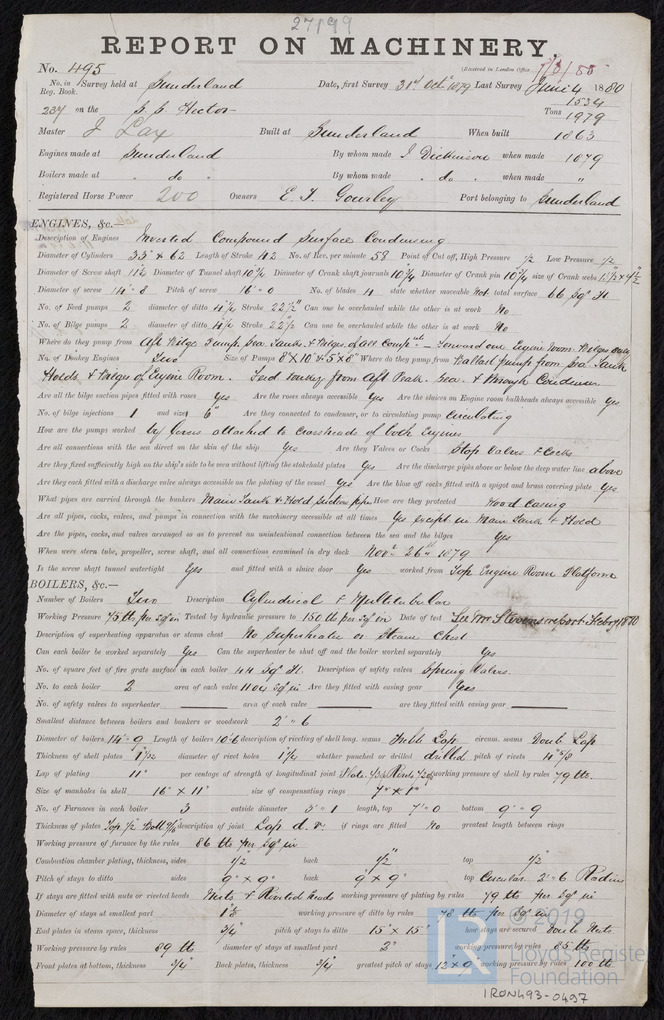 27199
REPORT ON MACHINERY.
No. 495 (Received in London Office
No. in Reg. Book. Survey held at Sunderland Date, first Survey 31st Oct 1879 Last Survey June 4 1880
237 on the S.S. Hector Tons 1534 1979
Master J Lax Built at Sunderland When built 1863
Engines made at Sunderland By whom made J Dickinson when made 1879
Boilers made at do By whom made do when made "
Registered Horse Power 200 Owners E. T. Gourley Port belonging to Sunderland
ENGINES, &c.—
Description of Engines Inverted Compound Surface Condensing
Diameter of Cylinders 33 & 62 Length of Stroke 42 No. of Rev. per minute 58 Point of Cut off, High Pressure 1/2 Low Pressure 1/2
Diameter of Screw shaft Diameter of Tunnel shaft 10 3/4 Diameter of Crank shaft journals 10 3/4 Diameter of Crank pin 10 3/4 size of Crank webs
Diameter of screw 14' - 8 Pitch of screw 16' - 0 No. of blades 4 state whether moveable Not total surface 66 Sqr ft
No. of Feed pumps 2 diameter of ditto 4 1/2 Stroke 22 1/2" Can one be overhauled while the other is at work No
No. of Bilge pumps 2 diameter of ditto 4 1/2 Stroke 22 1/2 Can one be overhauled while the other is at work No
Where do they pump from Aft Bilge Sea Tanks & Bilges of all Compts - Forward one Engine Room Bilges only
No. of Donkey Engines Two Size of Pumps 8"X10" & 5"x8" Where do they pump from Ballast pumps from Sea Tank
Holds & Bilges of Engine Room. Feed Donkey from Aft Peak. Sea & through Condenser
Are all the bilge suction pipes fitted with roses Yes Are the roses always accessible Yes Are the sluices on Engine room bulkheads always accessible Yes
No. of bilge injections 1 and sizes 6" Are they connected to condenser, or to circulating pump Circulating
How are the pumps worked by levers attached to Crossheads of both Engines
Are all connections with the sea direct on the skin of the ship Yes Are they Valves or Cocks Stop Valves & Cocks
Are they fixed sufficiently high on the ship's side to be seen without lifting the stokehold plates Yes Are the discharge pipes above or below the deep water line above
Are they each fitted with a discharge valve always accessible on the plating of the vessel Yes Are the blow off cocks fitted with a spigot and brass covering plate Yes
What pipes are carried through the bunkers Main Tank & Hold suction pipes How are they protected Wood Casing
Are all pipes, cocks, valves, and pumps in connection with the machinery accessible at all times Yes except in Main Tank & Hold
Are the pipes, cocks, and valves arranged so as to prevent an unintentional connection between the sea and the bilges Yes
When were stern tube, propeller, screw shaft, and all connections examined in dry dock Novr 26th 1879
Is the screw shaft tunnel watertight Yes and fitted with a sluice door Yes worked from Top Engine Room Platform
BOILERS, &c.—
Number of Boilers Two Description Cylindrical & Multitubular
Working Pressure 75 lb per Sq in Tested by hydraulic pressure to 150 lb per Sq in Date of test See Mr Stevens report
Description of superheating apparatus or steam chest No Superheater or Steam Chest
Can each boiler be worked separately Yes Can the superheater be shut off and the boiler worked separately Yes
No. of square feet of fire grate surface in each boiler 44 Sqr ft. Description of safety valves Spring Valves
No. to each boiler 2 area of each valve Are they fitted with easing gear Yes
No. of safety valves to superheater area of each valve are they fitted with easing gear
Smallest distance between boilers and bunkers or woodwork 2' - 6
Diameter of boilers 14' - 9 Length of boilers 10-6 description of riveting of shell long. seams Treble Lap circum. seams Double Lap
Thickness of shell plates 1 1/32 diameter of rivet holes 1 1/4 whether punched or drilled drilled pitch of rivets 4 5/8
Lap of plating 11" per centage of strength of longitudinal joint working pressure of shell by rules 79 lbs.
Size of manholes in shell 16" X 11" size of compensating rings 7" x 1"
No. of Furnaces in each boiler 3 outside diameter 3' - 1 length, top 7' - 0 bottom 9' - 9
Thickness of plates Top 1/2 Bott 9/16 description of joint Lap d. r. if rings are fitted No greatest length between rings
Working pressure of furnace by the rules 86 lb per Sqr in
Combustion chamber plating, thickness, sides 1/2 back 1/2 top 1/2
Pitch of stays to ditto sides 9" x 9" back 9" x 9" top Circular 2' - 6 Radius
If stays are fitted with nuts or riveted heads Nuts & Riveted heads working pressure of plating by rules 79 lb per Sqr in
Diameter of stays at smallest part working pressure of ditto by rules 78 lb per Sqr in
End plates in steam space, thickness 3/4 pitch of stays to ditto 15" x 15" how stays are secured Double Nuts
Working pressure by rules 89 lb diameter of stays at smallest part 2" working pressure by rules 85 lb
Front plates at bottom, thickness 3/4 Back plates, thickness 3/4 greatest pitch of stays 12" x 9 working pressure by rules 100 lb
© 2019
Lloyd's Register
Foundation
IRON493-0497